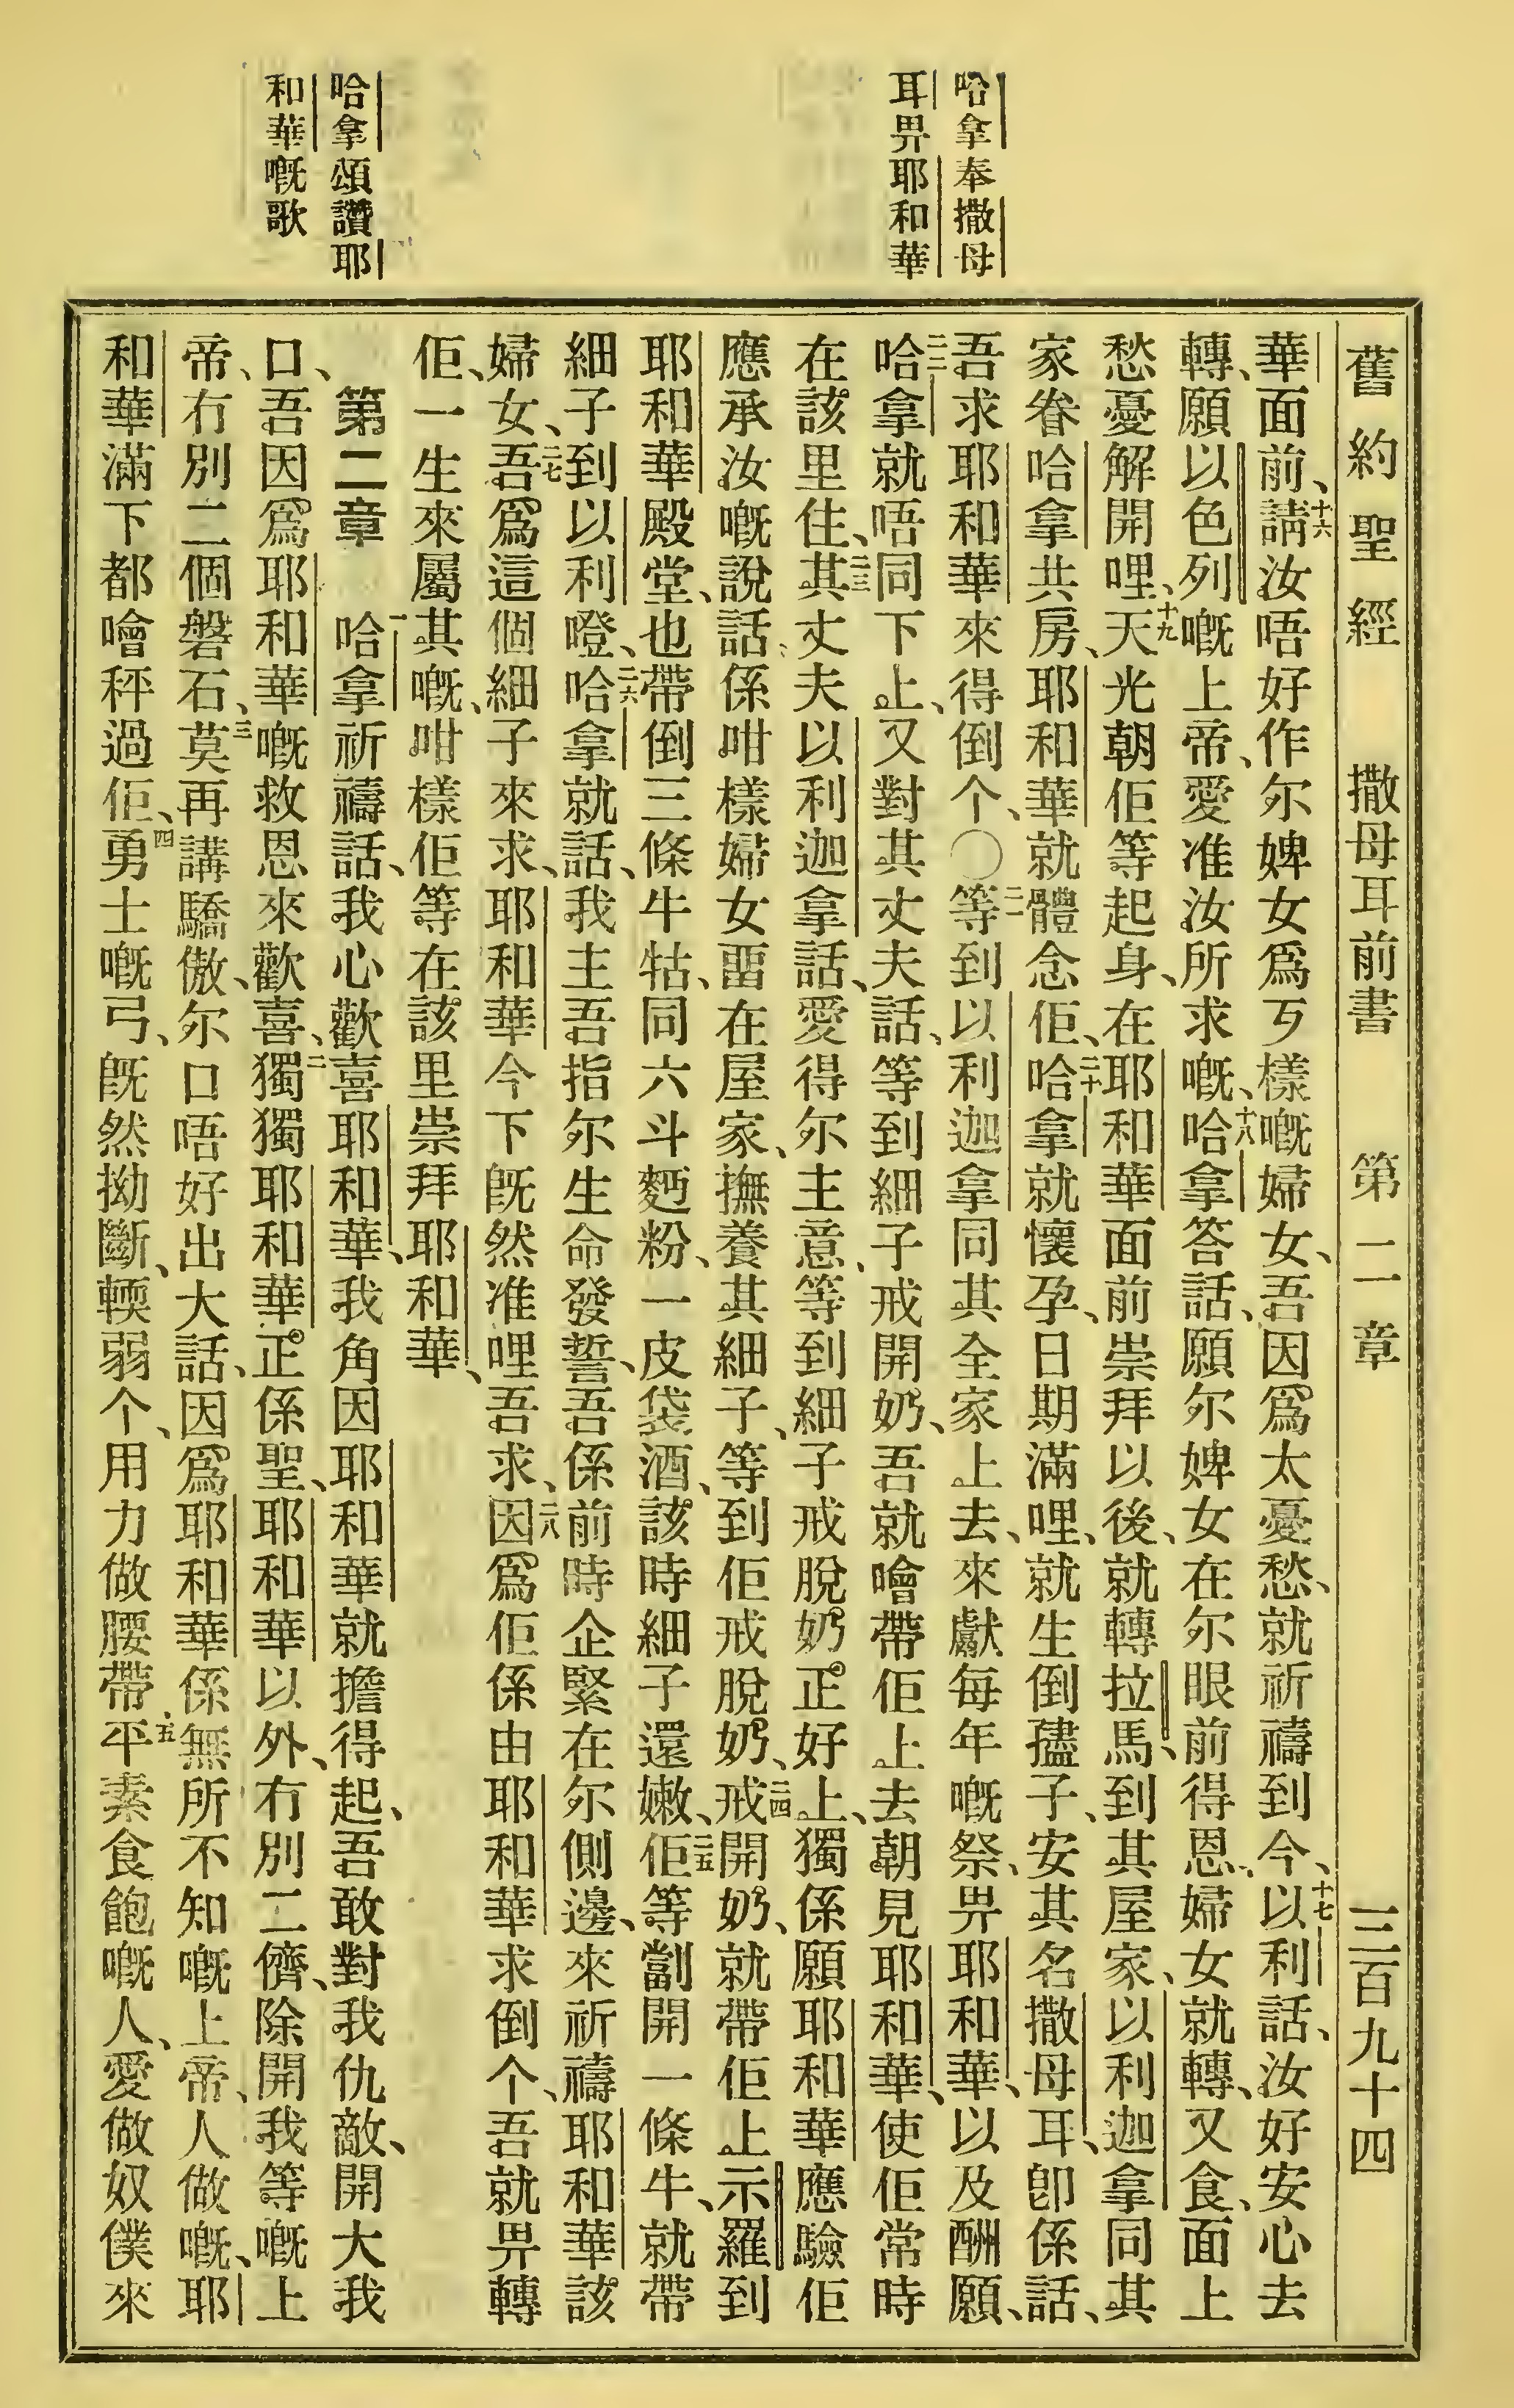 舊約聖經 撒母耳前書 第二章 三百九十四
哈拿奉撒母
耳畀耶和華
哈拿頌讚耶
和華嘅歌
華面前、十六請汝唔好作尔婢女爲丂樣嘅婦女、吾因爲太憂愁、就祈禱到今、十七以利話、汝好安心去
轉、願以色列嘅上帝、愛准汝所求嘅、十八哈拿答話、願尔婢女在尔眼前得恩、婦女就轉、又食、面上
愁憂解開哩、十九天光朝佢等起身、在耶和華面前崇拜以後、就轉拉馬、到其屋家、以利迦拿同其
家眷哈拿共房、耶和華就體念佢、二十哈拿就懷孕、日期滿哩、就生倒孻子、安其名撒母耳、卽係話、
吾求耶和華來得倒个、〇二一等到以利迦拿同其全家上去、來獻每年嘅祭、畀耶和華、以及酬願、
二二哈拿就唔同下上、又對其丈夫話、等到細子戒開奶、吾就噲帶佢上去朝見耶和華、使佢常時
在該里住、二三其丈夫以利迦拿話、愛得尔主意、等到細子戒脫奶正好上、獨係願耶和華應驗佢
應承汝嘅說話、係咁樣婦女畱在屋家、撫養其細子、等到佢戒脫奶、二四戒開奶、就帶佢上示羅到
耶和華殿堂、也帶倒三條牛牯、同六斗麪粉、一皮袋酒、該時細子還嫩、二五佢等劏開一條牛、就帶
細子到以利嶝、二六哈拿就話、我主吾指尔生命發誓、吾係前時企緊在尔側邊、來祈禱耶和華該
婦女、二七吾爲這個細子來求、耶和華今下旣然准哩吾求、二八因爲佢係由耶和華求倒个、吾就畀轉
佢、一生來屬其嘅、咁樣佢等在該里崇拜耶和華、
第二章 一哈拿祈禱話、我心歡喜耶和華、我角因耶和華就擔得起、吾敢對我仇敵、開大我
口、吾因爲耶和華嘅救恩來歡喜、二獨獨耶和華正係聖、耶和華以外、冇別二儕、除開我等嘅上
帝、冇別二個磐石、三莫再講驕傲、尔口唔好出大話、因爲耶和華係無所不知嘅上帝、人做嘅、耶
和華滿下都噲秤過佢、四勇士嘅弓、旣然拗斷、輭弱个、用力做腰帶、五平素食飽嘅人、愛做奴僕來